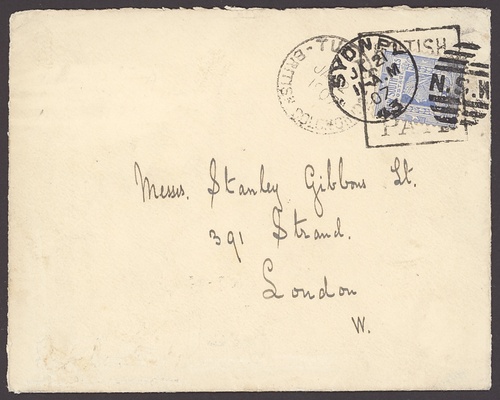 TU
BRITISH
SYDNEY
JA 21
11 A.M
07
43
N.S.W
PAI
Messrs. Stanley Gibbons Lt.
391 Strand.
London
W.